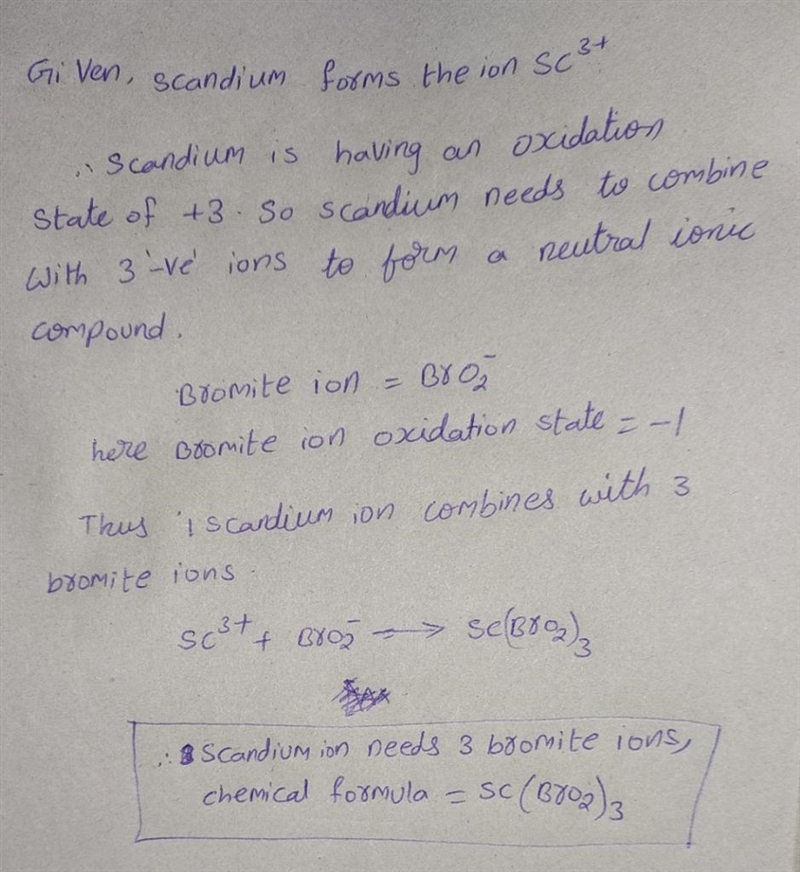 Given, scandium forms the ion Sc³⁺
∴ Scandium is having an oxidation
state of +3. So scandium needs to combine
With 3 '-ve' ions to form a neutral ionic
compound.
Bromite ion = BrO₂⁻
here Bromite ion oxidation state = -1
Thus 1 scandium ion combines with 3
bromite ions.
Sc³⁺ + BrO₂⁻ ⟶ Sc(BrO₂)₃
∴ Scandium ion needs 3 bromite ions,
chemical formula = Sc(BrO₂)₃